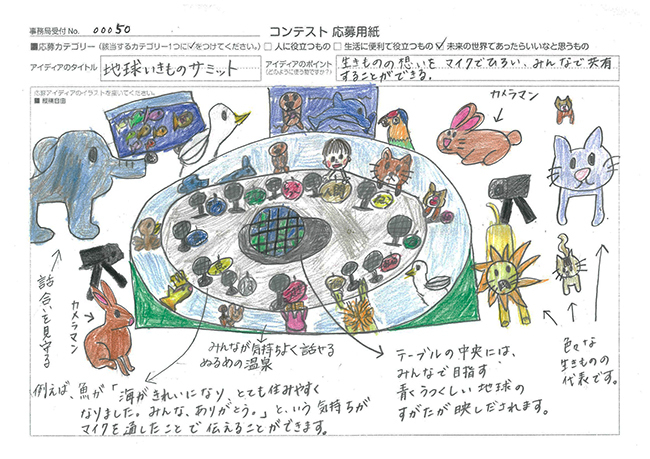 事務局受付No. 00050
コンテスト 応募用紙
■応募カテゴリー (該当するカテゴリー1つに✓をつけてください。) □ 人に役立つもの □ 生活に便利で役立つもの ☑ 未来の世界であったらいいなと思うもの
アイディアのタイトル 地球いきものサミット
アイディアのポイント
(どのように使う物ですか?)
生きものの想いを マイクでひろい、みんなで共有
することができる。
応募アイディアのイラストを描いてください。
カメラマン
話合いを見守る
カメラマン
みんなが気持ちよく話せる
ぬるめの温泉
テーブルの中央には、
みんなで目指す
青くうつくしい地球の
すがたが映しだされます。
色々な
生きものの
代表です。
例えば、魚が「海がきれいになり、とても住みやすく
なりました。みんな、ありがとう。」という気持ちが
マイクを通したことで 伝えることができます。